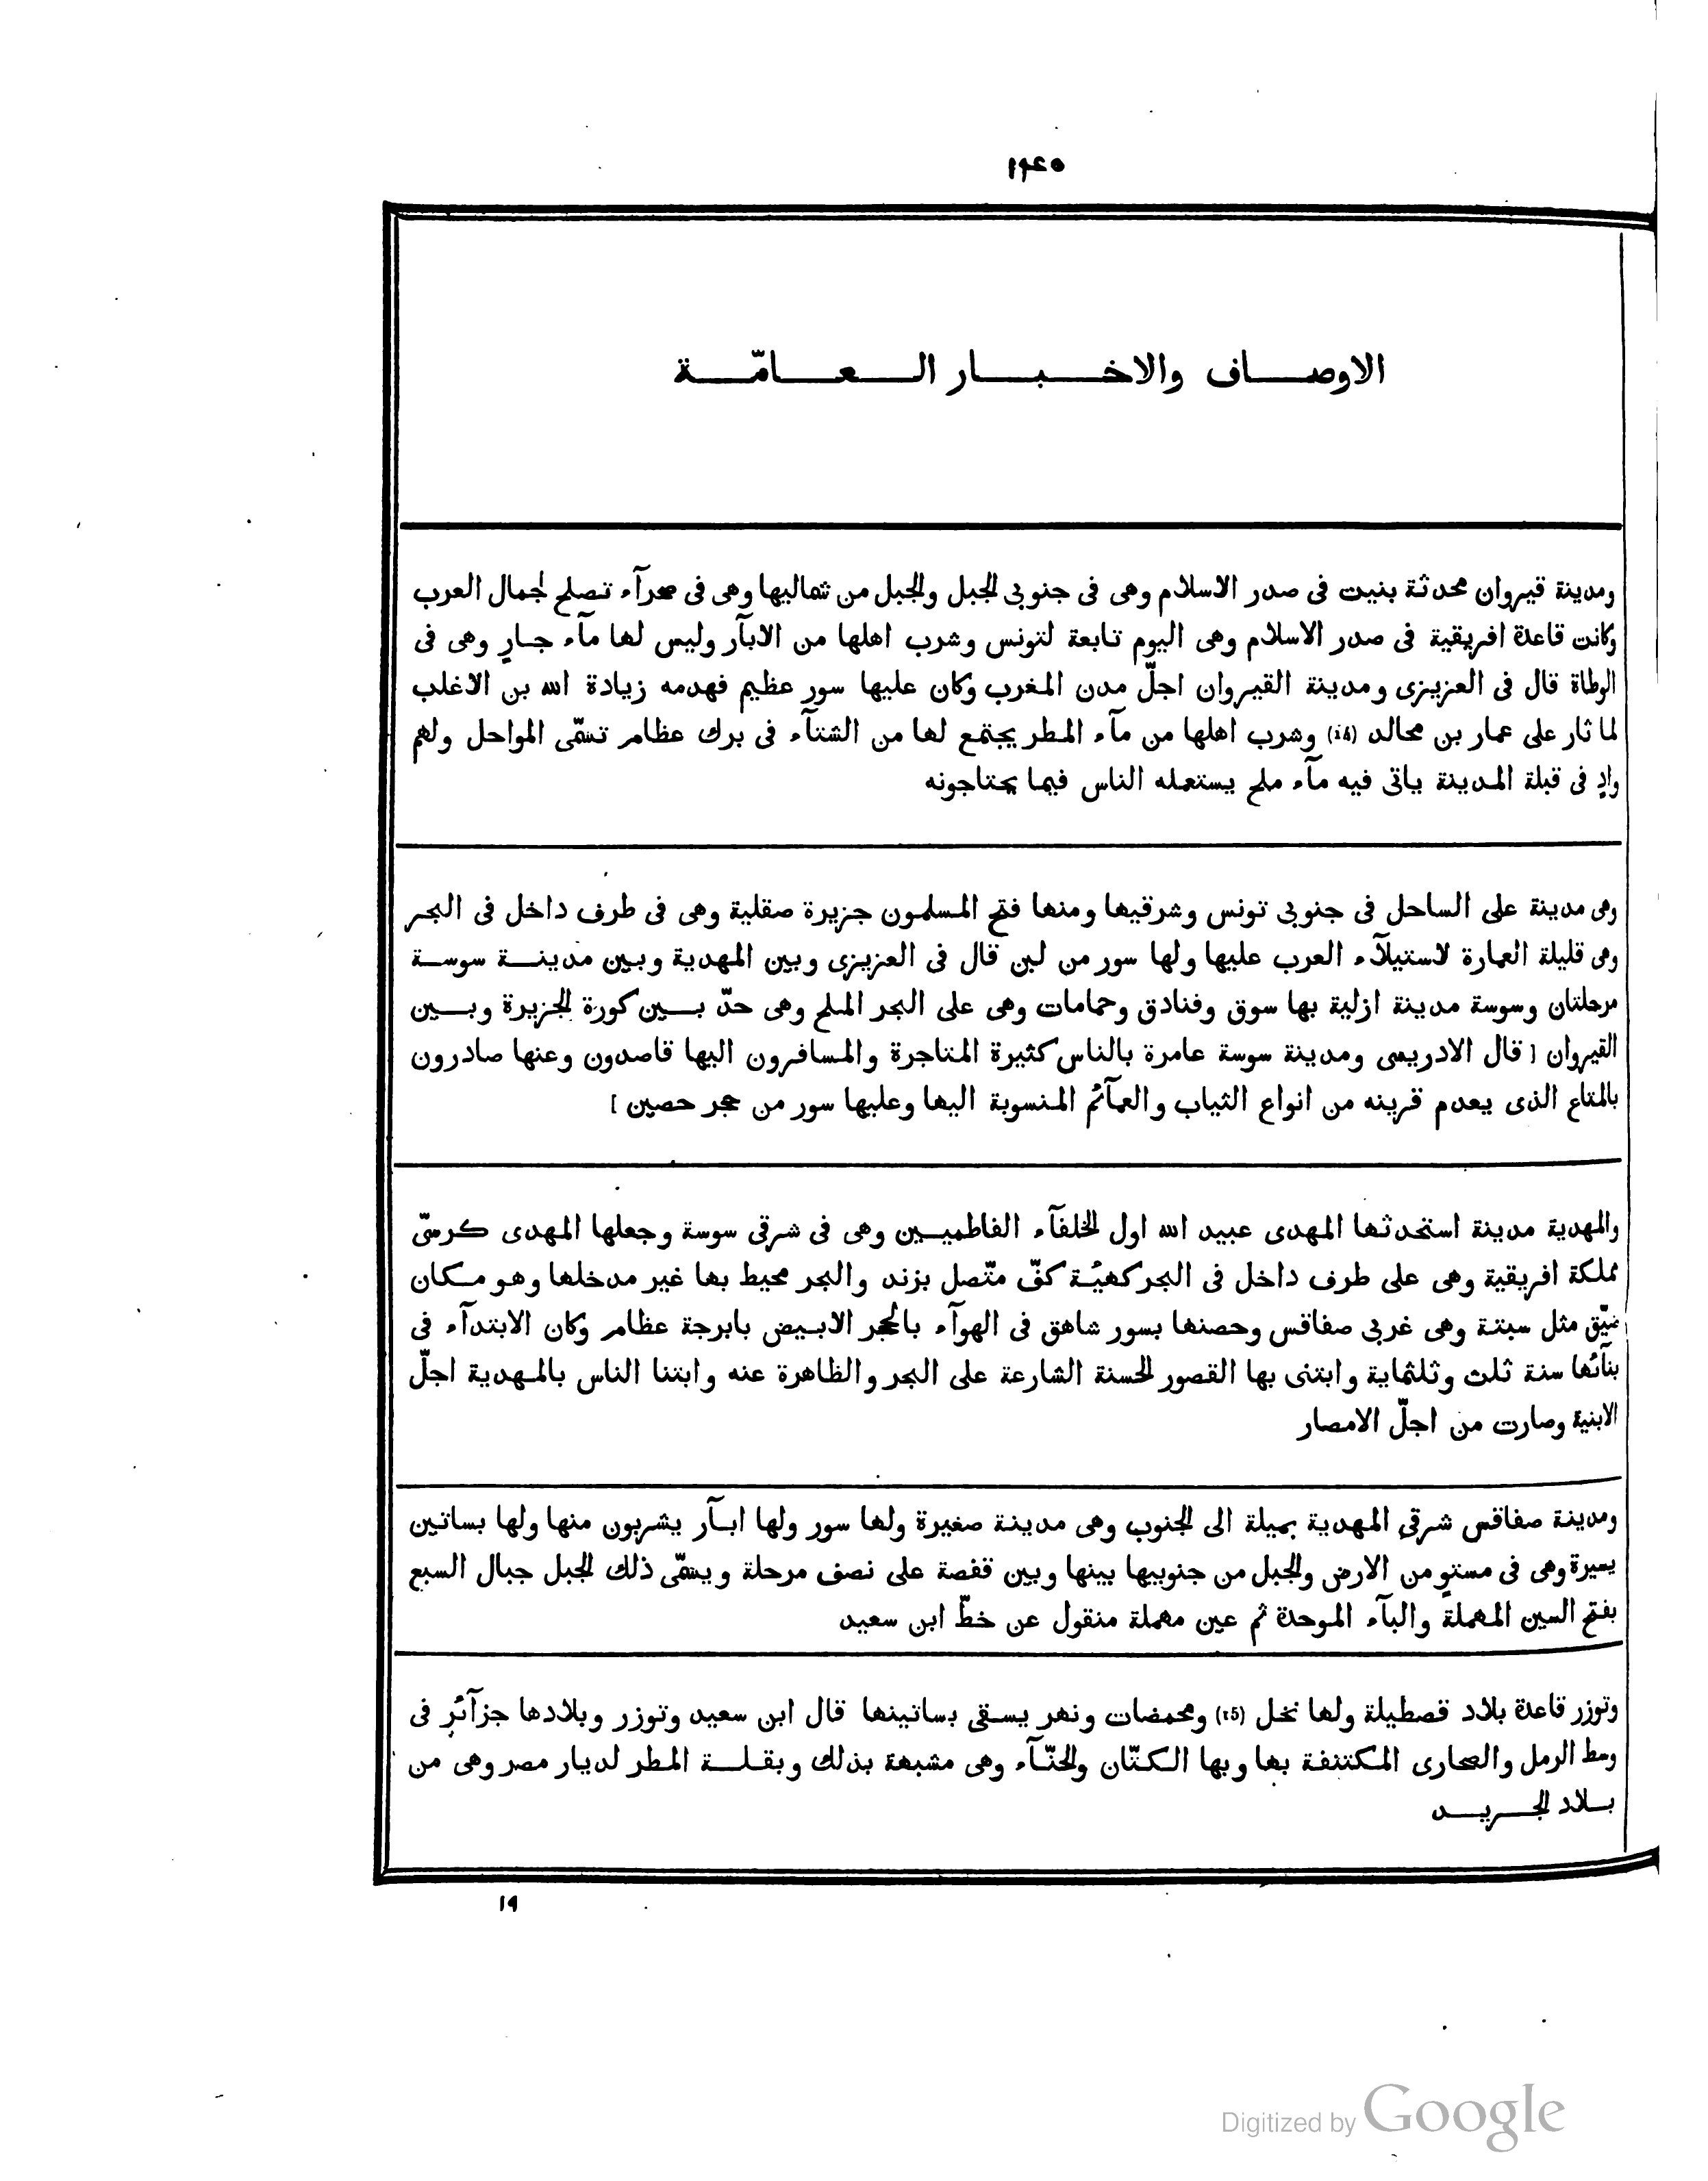 ١٤٥
الاوصاف والاخبار العامّة
ومدينة قيروان محدثة بنيت فى صدر الاسلام وهى فى جنوبى الجبل والجبل من شماليها وهى فى صحرآء تصلح لجمال العرب
وكانت قاعدة افريقية فى صدر الاسلام وهى اليوم تابعة لتونس وشرب اهلها من الابآر وليس لها مآء جارٍ وهى فى
الوطاة قال فى العزيزى ومدينة القيروان اجلّ مدن المغرب وكان عليها سور عظيم فهدمه زيادة الله بن الاغلب
لما ثار على عمار بن مجالد (14) وشرب اهلها من مآء المطر يجتمع لها من الشتآء فى برك عظام تسمّى المواجل ولهم
وادٍ فى قبلة المدينة ياتى فيه مآء ملح يستعمله الناس فيما يحتاجونه
وهى مدينة على الساحل فى جنوبى تونس وشرقيها ومنها فتح المسلمون جزيرة صقلية وهى فى طرف داخل فى البحر
وهى قليلة العمارة لاستيلآء العرب عليها ولها سور من لبن قال فى العزيزى وبين المهدية وبين مدينة سوسة
مرحلتان وسوسة مدينة ازلية بها سوق وفنادق وحمامات وهى على البحر الملح وهى حدّ بين كورة الجزيرة وبين
القيروان [ قال الادريسى ومدينة سوسة عامرة بالناس كثيرة المتاجرة والمسافرون اليها قاصدون وعنها صادرون
بالمتاع الذى يعدم قرينه من انواع الثياب والعمآئم المنسوبة اليها وعليها سور من حجر حصين ]
والمهدية مدينة استحدثها المهدى عبيد الله اول الخلفآء الفاطميين وهى فى شرقى سوسة وجعلها المهدى كرسىّ
مملكة افريقية وهى على طرف داخل فى البحر كهيُة كفّ متّصل بزند والبحر محيط بها غير مدخلها وهو مكان
ضيّق مثل سبتة وهى غربى صفاقس وحصنها بسور شاهق فى الهوآء بالحجر الابيض بابرجة عظام وكان الابتدآء فى
بنآئها سنة ثلث وثلثماية وابتنى بها القصور الحسنة الشارعة على البحر والظاهرة عنه وابتنا الناس بالمهدية اجلّ
الابنية وصارت من اجلّ الامصار
ومدينة صفاقس شرقى المهدية بميلة الى الجنوب وهى مدينة صغيرة ولها سور ولها ابآر يشربون منها ولها بساتين
يسيرة وهى فى مستوٍ من الارض والجبل من جنوبيها بينها وبين قفصة على نصف مرحلة ويسمّى ذلك الجبل جبال السبع
بفتح السين المهملة والبآء الموحدة ثم عين مهملة منقول عن خطّ ابن سعيد
وتوزر قاعدة بلاد قصطيلة ولها نخل (15) ومحمضات ونهر يسقى بساتينها قال ابن سعيد وتوزر وبلادها جزآئر فى
وسط الرمل والصحارى المكتنفة بها وبها الكتّان والحنّآء وهى مشبهة بذلك وبقلة المطر لديار مصر وهى من
بلاد الجريد
١٩
Digitized by Google